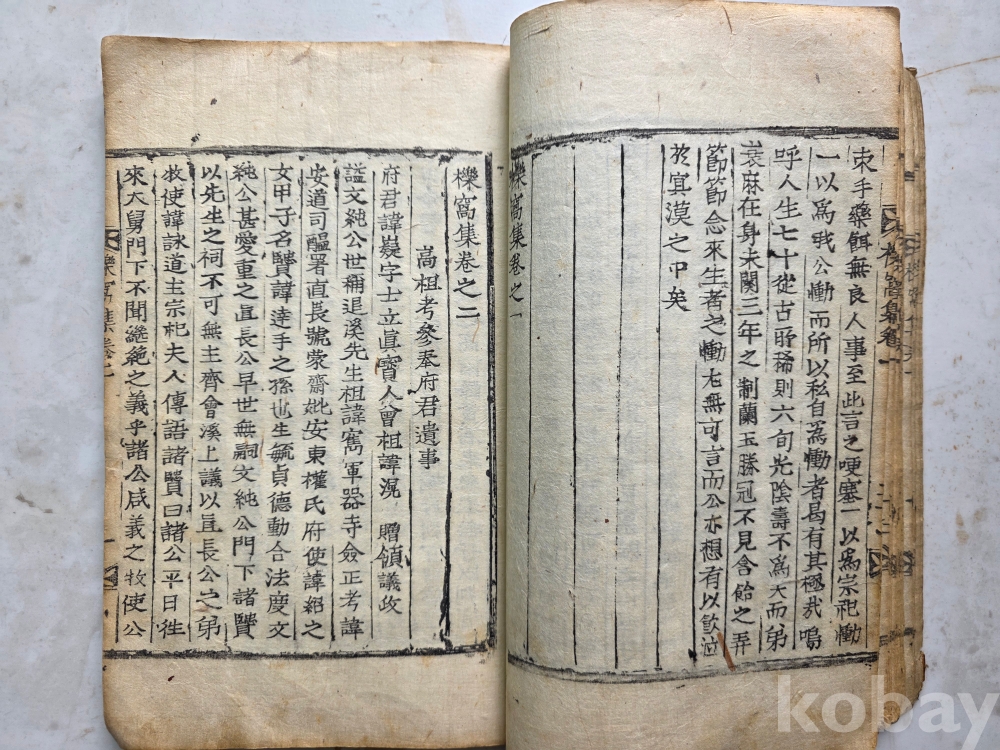 束手藥餌無良人事至此言之哽塞一以爲宗祀慟
一以爲我公慟而所以私自爲慟者曷有其極哉嗚
呼人生七十從古所稀則六旬光陰壽不爲夭而弟
衰麻在身未闋三年之制蘭玉勝冠不見含飴之弄
節節念来生者之慟尤無可言而公亦想有以飮泣
於冥漠之中矣
櫟窩集卷之一
櫟窩集卷之二
高祖考參奉府君遺事
府君諱嶷字士立眞寶人曾祖諱滉 贈領議政
謚文純公世稱退溪先生祖諱寯軍器寺僉正考諱
安道司醞署直長號蒙齋妣安東權氏府使諱紹之
女甲子名賢諱達手之孫也生毓貞德動合法度文
純公甚愛重之直長公早世無嗣文純公門下諸賢
以先生之祠不可無主齊會溪上議以直長公之弟
牧使諱詠道主宗祀夫人傳語諸賢曰諸公平日徃
來大舅門下不聞繼絶之義乎諸公咸義之牧使公
櫟窩集卷一
櫟窩集卷二
kobay